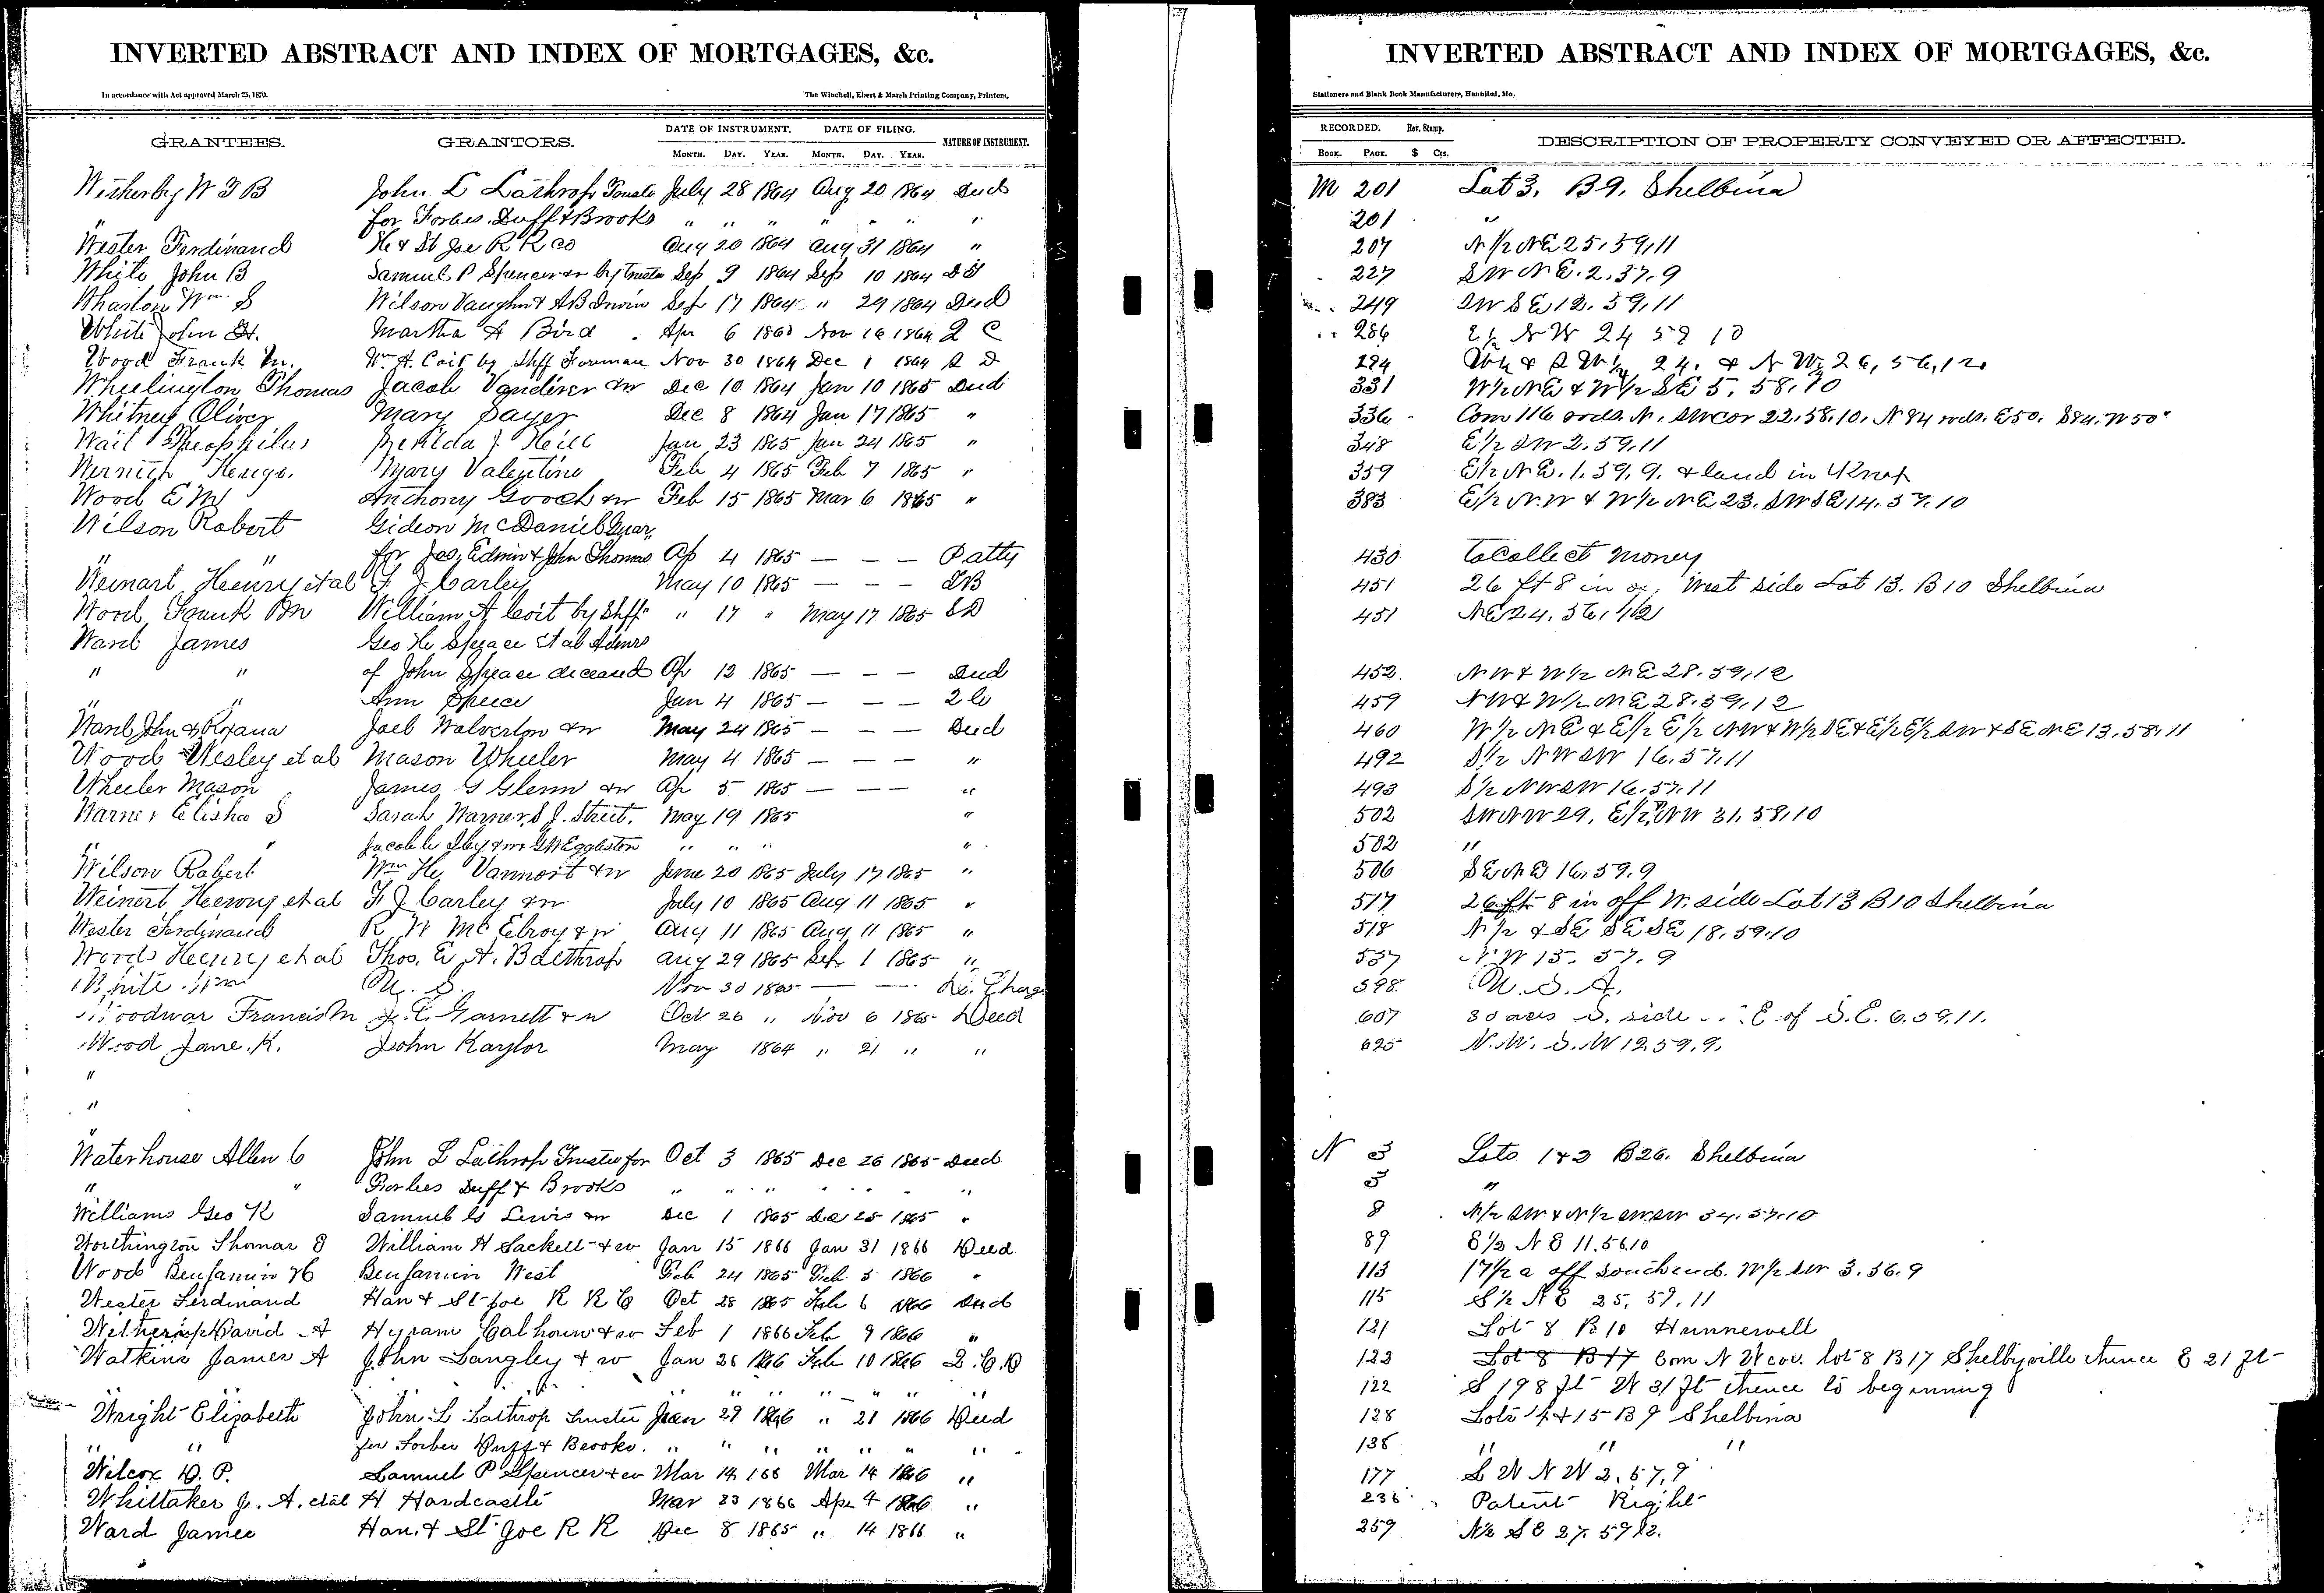 INVERTED ABSTRACT AND INDEX OF MORTGAGES, &c.
In accordance with Act approved March 25, 1870. The Winchell, Ebert & Marsh Printing Company, Printers,
GRANTEES. GRANTORS. DATE OF INSTRUMENT. DATE OF FILING. NATURE OF INSTRUMENT.
MONTH. DAY. YEAR. MONTH. DAY. YEAR.
Witherby W T B John L Lathrop Trustee July 28 1864 Aug 20 1864 Deed
" for Forbes Duff & Brooks " " " " " " "
Wester Ferdinand H & St Joe R R Co Aug 20 1864 Aug 31 1864 "
White John B Samuel P Spencer & w by Trustee Sep 9 1864 Sep 10 1864
Wharton Wm S Wilson Vaughn & A B Irwin Sep 17 1864 " 29 1864 Deed
White John H. Martha A Bird Apr 6 1860 Nov 16 1864 Q C
Wood Frank M. Wm A. Coit by Shff Foreman Nov 30 1864 Dec 1 1864 S D
Wheelington Thomas Jacob Vandiver & w Dec 10 1864 Jan 10 1865 Deed
Whitney Oliver Mary Sayer Dec 8 1864 Jan 17 1865 "
Wait Theophilus J Heill Jan 23 1865 Jan 24 1865 "
Mary Valentine Feb 4 1865 Feb 7 1865 "
Wood E M Anthony Gooch & w Feb 15 1865 Mar 6 1865 "
Wilson Robert Gideon McDaniel Guar,
" " for Jas, Edwin & John Thomas Ap 4 1865 — — — P atty
Weinart Henry et al F J Carley May 10 1865 — — —
Wood Frank M William A Coit by Shff " 17 " May 17 1865 S D
Ward James Geo H Spease et al Admrs
" " of John Spease deceased Ap 12 1865 — — — Deed
" " Ann Jan 4 1865 — — — 2 C
Ward John & Roxana Joel Walverton & w May 24 1865 — — — Deed
Wood Wesley et al Mason Wheeler May 4 1865 — — — "
Wheeler Mason James G Glenn & w Ap 5 1865 — — — "
Warner Elisha S Sarah Warner, S J. Street, May 19 1865 "
" " Jacob & w G W Eggleston " " " "
Wilson Robert Wm H. Vannort & w June 20 1865 July 17 1865 "
Weinert Henry et al F J Carley & w July 10 1865 Aug 11 1865 "
Wester Ferdinand R W McElroy & w Aug 11 1865 Aug 11 1865 "
Woods Henry et al Thos. E A. Balthrop Aug 29 1865 Sep 1 1865 "
White Wm U. S. Nov 30 1865 — — Charge
Woodwar Francis M J. E. Garnett & w Oct 26 " Nov 6 1865 Deed
Wood Jane K. John Kaylor May 1864 " 21 " "
"
"
Waterhouse Allen C John L Lathrop Trustee for Oct 3 1865 Dec 26 1865 Deed
" " Forbes Duff & Brooks " " " " " " "
Williams Geo K Samuel G Lewis & w Dec 1 1865 Dec 25 1865 "
Worthington Thomas J William H Sackett & w Jan 15 1866 Jan 31 1866 Deed
Wood Benjamin H Benjamin West Feb 24 1865 Feb 5 1866 "
Wester Ferdinand Han & St Joe R R Co Oct 28 1865 Feb 6 1866 Deed
David A Hyram Calhoun & w Feb 1 1866 Feb 9 1866 "
Watkins James A John Langley & w Jan 26 1866 Feb 10 1866 Q. C. D
" " " " " " " "
Wright Elizabeth John L Lathrop Trustee Jan 29 1866 " 21 1866 Deed
" " for Forbes Duff & Brooks. " " " " " " "
Wilcox D. P. Samuel P Spencer & w Mar 14 166 Mar 14 1866 "
Whittaker J. A. et al H Hardcastle Mar 23 1866 Apr 4 1866 "
Ward James Han. & St. Joe R R Dec 8 1865 " 14 1866 "
INVERTED ABSTRACT AND INDEX OF MORTGAGES, &c.
Stationers and Blank Book Manufacturers, Hannibal, Mo.
RECORDED. Rev. Stamp. DESCRIPTION OF PROPERTY CONVEYED OR AFFECTED.
BOOK. PAGE. $ CTS.
M 201 Lot 3. B 9. Shelbina
201 "
207 N 1/2 NE 25, 59, 11
227 SW NE. 2, 57, 9
249 SW SE 12. 59, 11
286 E 1/2 NW 24 59 10
294 24. & N W 26, 56, 12
331 W 1/2 NE & W 1/2 SE 5, 58, 10
336 Com 116 rods. N. SW cor 22. 58. 10. N 84 rods. E 50. S 84. W 50"
348 E 1/2 SW 2. 59, 11
359 E 1/2 NE. 1. 59, 9. & land in Knox
383 E 1/2 N.W & W 1/2 NE 23. SW SE 14. 57. 10
430 to Collect money
451 26 ft 8 in off West side Lot 13. B 10 Shelbina
451 NE 24. 56, 12
452 NW & W 1/2 NE 28. 59, 12
459 NW & W 1/2 NE 28. 59, 12
460 W 1/2 NE & E 1/2 E 1/2 NW & W 1/2 SE & E 1/2 E 1/2 SW & SE NE 13. 58. 11
492 S 1/2 NW SW 16. 57. 11
493 S 1/2 NW SW 16. 57. 11
502 SW NW 29, E 1/2 NW 31, 58, 10
502 "
506 SE NE 16, 59. 9
517 26 ft 8 in off W. side Lot 13 B 10 Shelbina
518 N 1/2 & SE SE SE 18. 59. 10
537 N W 15. 57. 9
598 U. S. A.
607 30 acres S. side E of S. E. 6. 59. 11.
625 N. W. S. W 12. 59. 9.
N 3 Lots 1 & 2 B 26. Shelbina
3 "
8 N 1/2 SW & N 1/2 SW SW 34. 57. 10
89 E 1/2 N E 11. 56 10
113 17 1/2 a off South end. W 1/2 SW 3. 56. 9
115 S 1/2 N E 25, 59. 11
121 Lot 8 B 10 Hunnewell
122 Lot 8 B 17 Com N W cor. lot 8 B 17 Shelbyville thence E 21 ft
122 S 198 ft W 21 ft thence to beginning
128 Lots 14 & 15 B 9 Shelbina
138 " " "
177 S W N W 2. 57, 9
236 Patent Right
259 N 1/2 S E 27. 59 12.